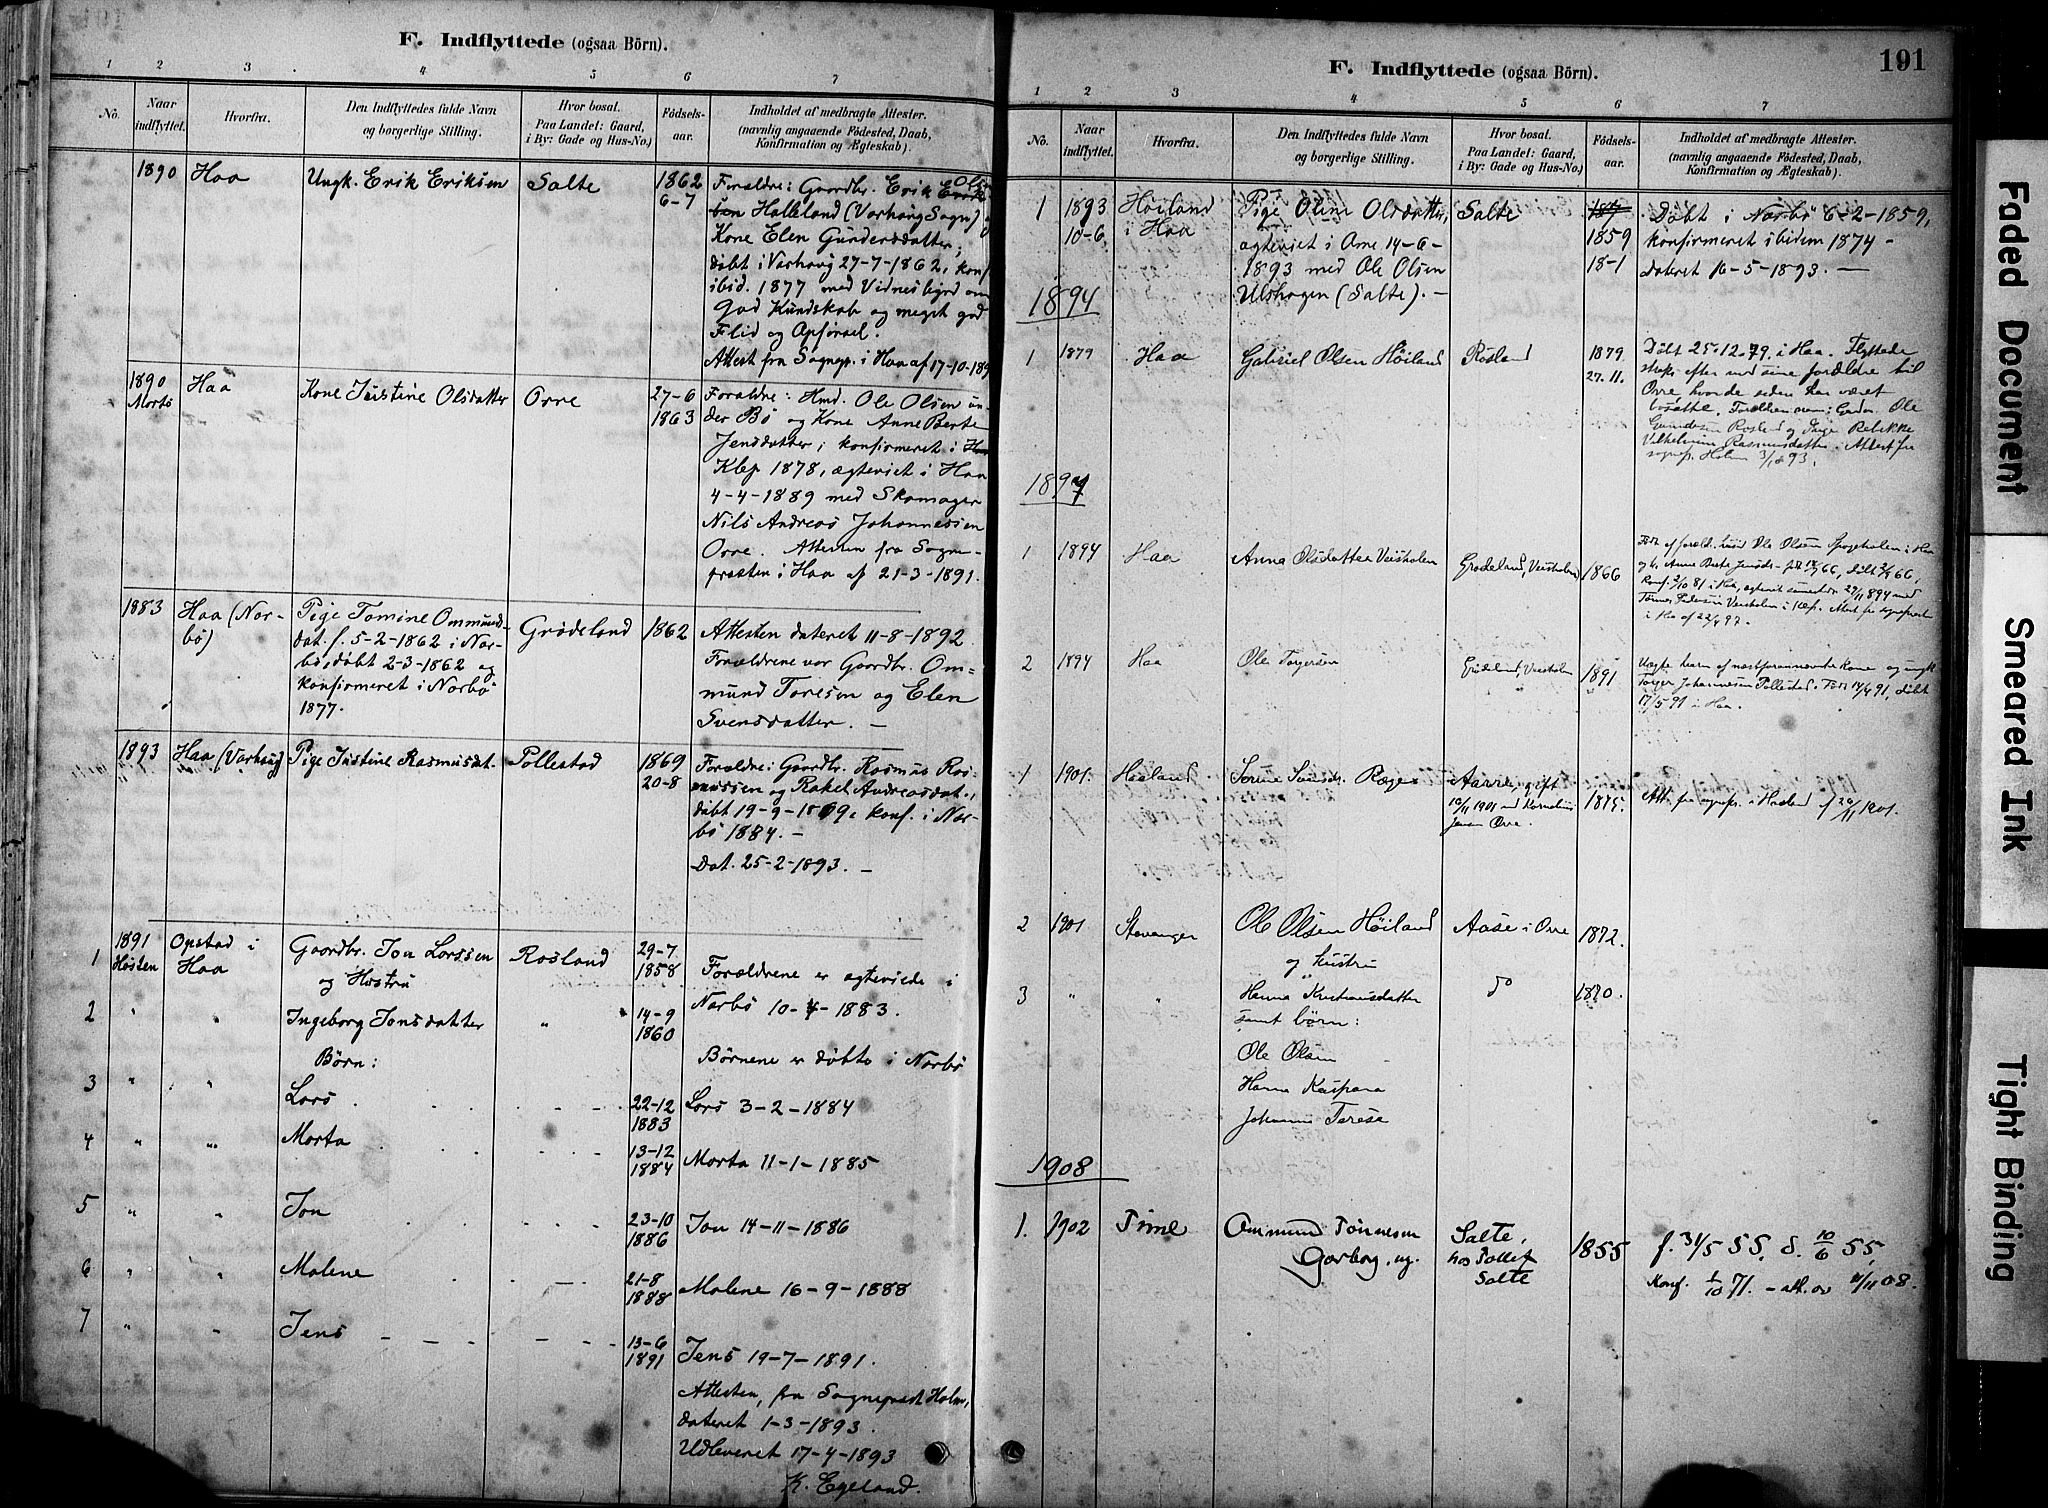 F. Indflyttede (ogsaa Börn).
1 2 3 4 5 6 7
No. Naar indflyttet. Hvorfra. Den Indflyttedes fulde Navn og borgerlige Stilling. Hvor bosat. Paa Landet: Gaard, i By: Gade og Hus-No.) Födsels-aar. Indholdet af medbragte Attester. (navnlig angaaende Födested, Daab, Konfirmation og Ægteskab).
1890 Haa Ungk. Erik Eriksen Salte 1862 Forældre: Gaardbr. Erik Ols
6-7 sen Halleland (Varhaug Sogn) og
Kone Elen Gundersdatter;
døbt i Varhaug 27-7-1862, konf.
ibid. 1877 med Vidnesbyrd om
god Kundskab og meget god
Flid og Opførsel.
Attest fra Sognepr. i Haa af 17-10-189
1890 Haa Kone Justine Olsdatter Orre 27-6 Forældre: Hmd. Ole Olsen un-
Marts 1863 der Bø og Kone Anne Berte
Jensdatter; konfirmeret i
Klep 1878, ægteviet i Haa
4-4-1889 med Skomager
Nils Andreas Johannessen
Orre. Attesten fra Sogne-
præsten i Haa af 21-3-1891.
1883 Haa (Nor- Pige Tomine Ommund- Grødeland 1862 Attesten dateret 11-8-1892.
bø) dat. f. 5-2-1862 i Nar- Forældrene var Gaardbr. Om-
bø, døbt 2-3-1862 og mund Toresen og Elen
konfirmeret i Narbø Svensdatter. —
1877.
1893 Haa (Varhaug) Pige Justine Rasmusdat. Pollestad 1869 Forældre: Gaardbr. Rasmus Ras-
20-8 mussen og Rakel Andreasdat.,
døbt 19-9-1869, konf. i Nar-
bø 1884. —
Dat. 25-2-1893. —
1 1891 Opstad i Gaardbr. Jon Larssen Rosland 29-7
Høsten Haa og Hustru 1858 Forældrene er ægteviede i
2 " " Ingeborg Jonsdatter " 14-9 Narbø 10-4-1883.
1860
Børn: Børnene er døbte i Narbø
3 " " Lars 22-12 Lars 3-2-1884
1883
4 " " Marta 13-12 Marta 11-1-1885
1884
5 " " Jon 23-10 Jon 14-11-1886
1886
6 " " Malene 21-8 Malene 16-9-1888
1888
7 " " Jens 13-6 Jens 19-7-1891.
1891
Attesten, fra Sognepræst Holm,
dateret 1-3-1893.
Udleveret 17-4-1893
K. Egeland.
191
F. Indflyttede (ogsaa Börn).
1 2 3 4 5 6 7
No. Naar indflyttet. Hvorfra. Den Indflyttedes fulde Navn og borgerlige Stilling. Hvor bosat. Paa Landet: Gaard, i By: Gade og Hus-No.) Födsels-aar. Indholdet af medbragte Attester. (navnlig angaaende Födested, Daab, Konfirmation og Ægteskab).
1 1893 Høiland Pige Oline Olsdatter, Salte Døbt i Narbø 6-2-1859,
10-6 i Haa ægteviet i Orre 14-6- 1859 konfirmeret ibidem 1874 —
1893 med Ole Olsen 18-1 dateret 16-5-1893. —
Ulshagen (Salte). —
1894
1 1879 Haa Gabriel Olsen Høiland Rosland 1879. Døbt 25.12.79. i Haa. Flyttede
27.11. straks efter med sine forældre til
Orre hvor de siden har været
bosatte. Forældrenes navn: Gaardm. Ole
Gundersen Rosland og Inger Rebekke
Vilhelmine Rasmusdatter. Attest fra
sognepr. Holm 3/1 93.
1897
1 1894 Haa Anna Olsdatter Veisholen Grødeland, Veisholen 1866 Født af foreld. Ole Olsen i Haa
og k. Anne Berte Jensd.
Konf. 2/10 81 i Haa, ægteviet sammesteds 27/11 894 med
Tønnes Pedersen Veisholen i Klep. Attest fra sognepræsten
i Haa af 22/4 97.
2 1894 Haa Ole Torgersen Grødeland, Veisholen 1891 Uægte barn af næstforannævnte kone og ungk.
Torger Johannesen Pollestad. Født 14/4 91, døbt
17/5 91 i Haa.
1 1901. Høiland Rage Aarre, gift 1875. Att. fra sognepr. i Høiland af 20/11 1901.
10/11 1901 med Kornelius
Jensen Orre.
2 1901 Stavanger Ole Olsen Høiland Aase i Orre 1872.
og hustru
3 " " Hanna Kristiansdatter do 1870.
samt børn:
Ole Olsen
Hanna Kaspara
Johanne Terese
1908
1. 1902 Time Ommund Tønnesen Salte, 1855 f. 31/5 55, d. 10/6 55,
Garborg, ug. hos Sallef Konf. 1/10 71. — att. av 11/11 08.
Salte
Faded Document
Smeared Ink
Tight Binding